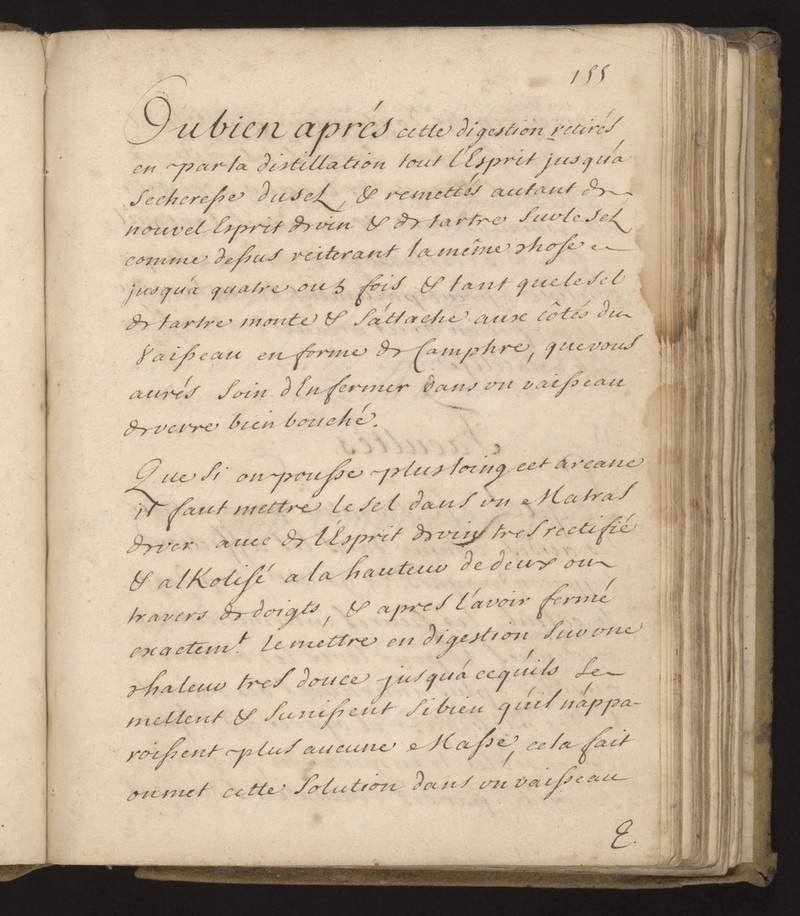 155
Ou bien aprés cette digestion retirés
en par la distillation tout l'Esprit jusqu'a
secheresse du sel, & remettés autant de
nouvel Esprit de vin & de tartre sur le sel
comme dessus reiterant la même chose
jusqu'a quatre ou 5 fois & tant que le sel
de tartre monte & s'attache aux côtés du
Vaisseau en forme de Camphre, que vous
aurés soin d'Enfermer dans un vaisseau
de verre bien bouché.
Que si on pousse plus loing cet arcane
il faut mettre le sel dans un Matras
de ver avec de l'Esprit de vin tres rectifié
& alKolisé a la hauteur de deux ou
travers de doigts, & apres l'avoir fermé
exactem.t le mettre en digestion sur une
chaleur tres douce jusqu'a ce qu'ils se
mellent & s'unissent si bien qu'il n'appa-
roissent plus aucune Masse, cela fait
on met cette solution dans un vaisseau